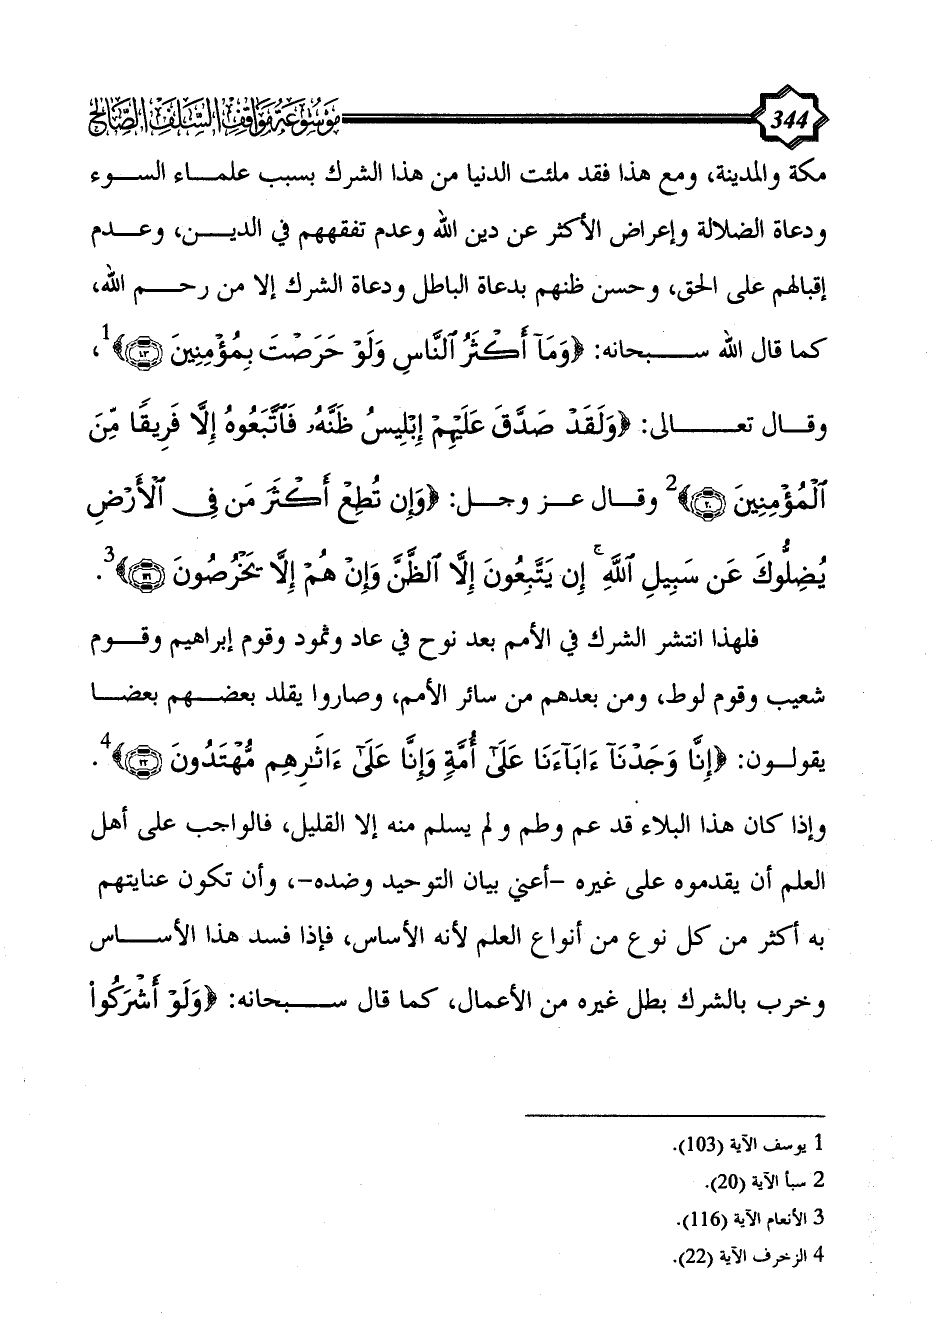 344 موسوعة مواقف السلف الصالح
مكة والمدينة، ومع هذا فقد ملئت الدنيا من هذا الشرك بسبب علمـــاء الســوء
ودعاة الضلالة وإعراض الأكثر عن دين الله وعدم تفقههم في الديـــن، وعـــدم
إقبالهم على الحق، وحسن ظنهم بدعاة الباطل ودعاة الشرك إلا من رحـــم الله،
كما قال الله ســـبحانه: ﴿وَمَآ أَكْثَرُ ٱلنَّاسِ وَلَوْ حَرَصْتَ بِمُؤْمِنِينَ ١٠٣﴾1،
وقـــال تعـــــالى: ﴿وَلَقَدْ صَدَّقَ عَلَيْهِمْ إِبْلِيسُ ظَنَّهُۥ فَٱتَّبَعُوهُ إِلَّا فَرِيقًا مِّنَ
ٱلْمُؤْمِنِينَ ٢٠﴾2 وقـــال عـــز وجـــل: ﴿وَإِن تُطِعْ أَكْثَرَ مَن فِى ٱلْأَرْضِ
يُضِلُّوكَ عَن سَبِيلِ ٱللَّهِ ۚ إِن يَتَّبِعُونَ إِلَّا ٱلظَّنَّ وَإِنْ هُمْ إِلَّا يَخْرُصُونَ ١١٦﴾3.
فلهذا انتشر الشرك في الأمم بعد نوح في عاد وثمود وقوم إبراهيم وقـــوم
شعيب وقوم لوط، ومن بعدهم من سائر الأمم، وصاروا يقلد بعضـــهم بعضـــا
يقولـــون: ﴿إِنَّا وَجَدْنَآ ءَابَآءَنَا عَلَىٰٓ أُمَّةٍ وَإِنَّا عَلَىٰٓ ءَاثَٰرِهِم مُّهْتَدُونَ ٢٢﴾4.
وإذا كان هذا البلاء قد عم وطم ولم يسلم منه إلا القليل، فالواجب على أهل
العلم أن يقدموه على غيره -أعني بيان التوحيد وضده-، وأن تكون عنايتهم
به أكثر من كل نوع من أنواع العلم لأنه الأساس، فإذا فسد هذا الأســـاس
وخرب بالشرك بطل غيره من الأعمال، كما قال ســـبحانه: ﴿وَلَوْ أَشْرَكُوا۟
1 يوسف الآية (103).
2 سبأ الآية (20).
3 الأنعام الآية (116).
4 الزخرف الآية (22).